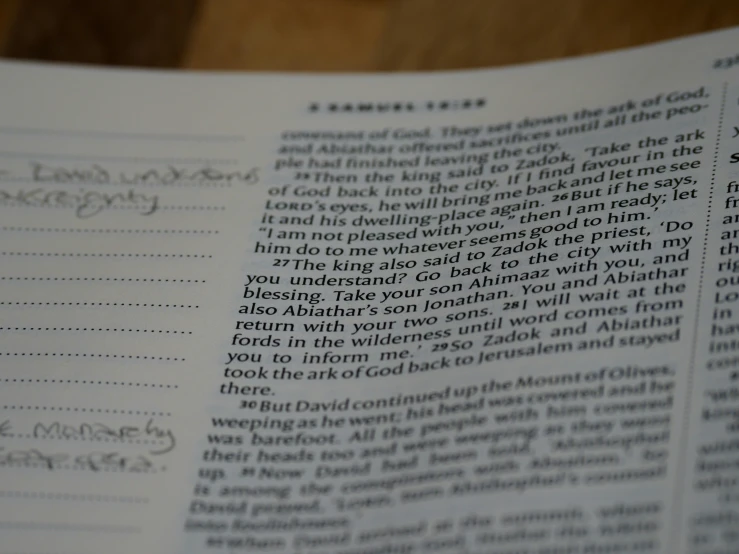 2 SAMUEL 15:28
covenant of God. They set down the ark of God,
and Abiathar offered sacrifices until all the peo-
ple had finished leaving the city.
25 Then the king said to Zadok, 'Take the ark
of God back into the city. If I find favour in the
LORD's eyes, he will bring me back and let me see
it and his dwelling-place again. 26 But if he says,
"I am not pleased with you," then I am ready; let
him do to me whatever seems good to him.'
27 The king also said to Zadok the priest, 'Do
you understand? Go back to the city with my
blessing. Take your son Ahimaaz with you, and
also Abiathar's son Jonathan. You and Abiathar
return with your two sons. 28 I will wait at the
fords in the wilderness until word comes from
you to inform me.' 29 So Zadok and Abiathar
took the ark of God back to Jerusalem and stayed
there.
30 But David continued up the Mount of Olives,
weeping as he went; his head was covered and he
was barefoot. All the people with him covered
their heads too and were weeping as they went
up. 31 Now David had been told, 'Ahithophel
is among the conspirators with Absalom.' So
David prayed, 'LORD, turn Ahithophel's counsel
into foolishness.'
32 When David arrived at the summit, where
David understands
sovereignty
monarchy